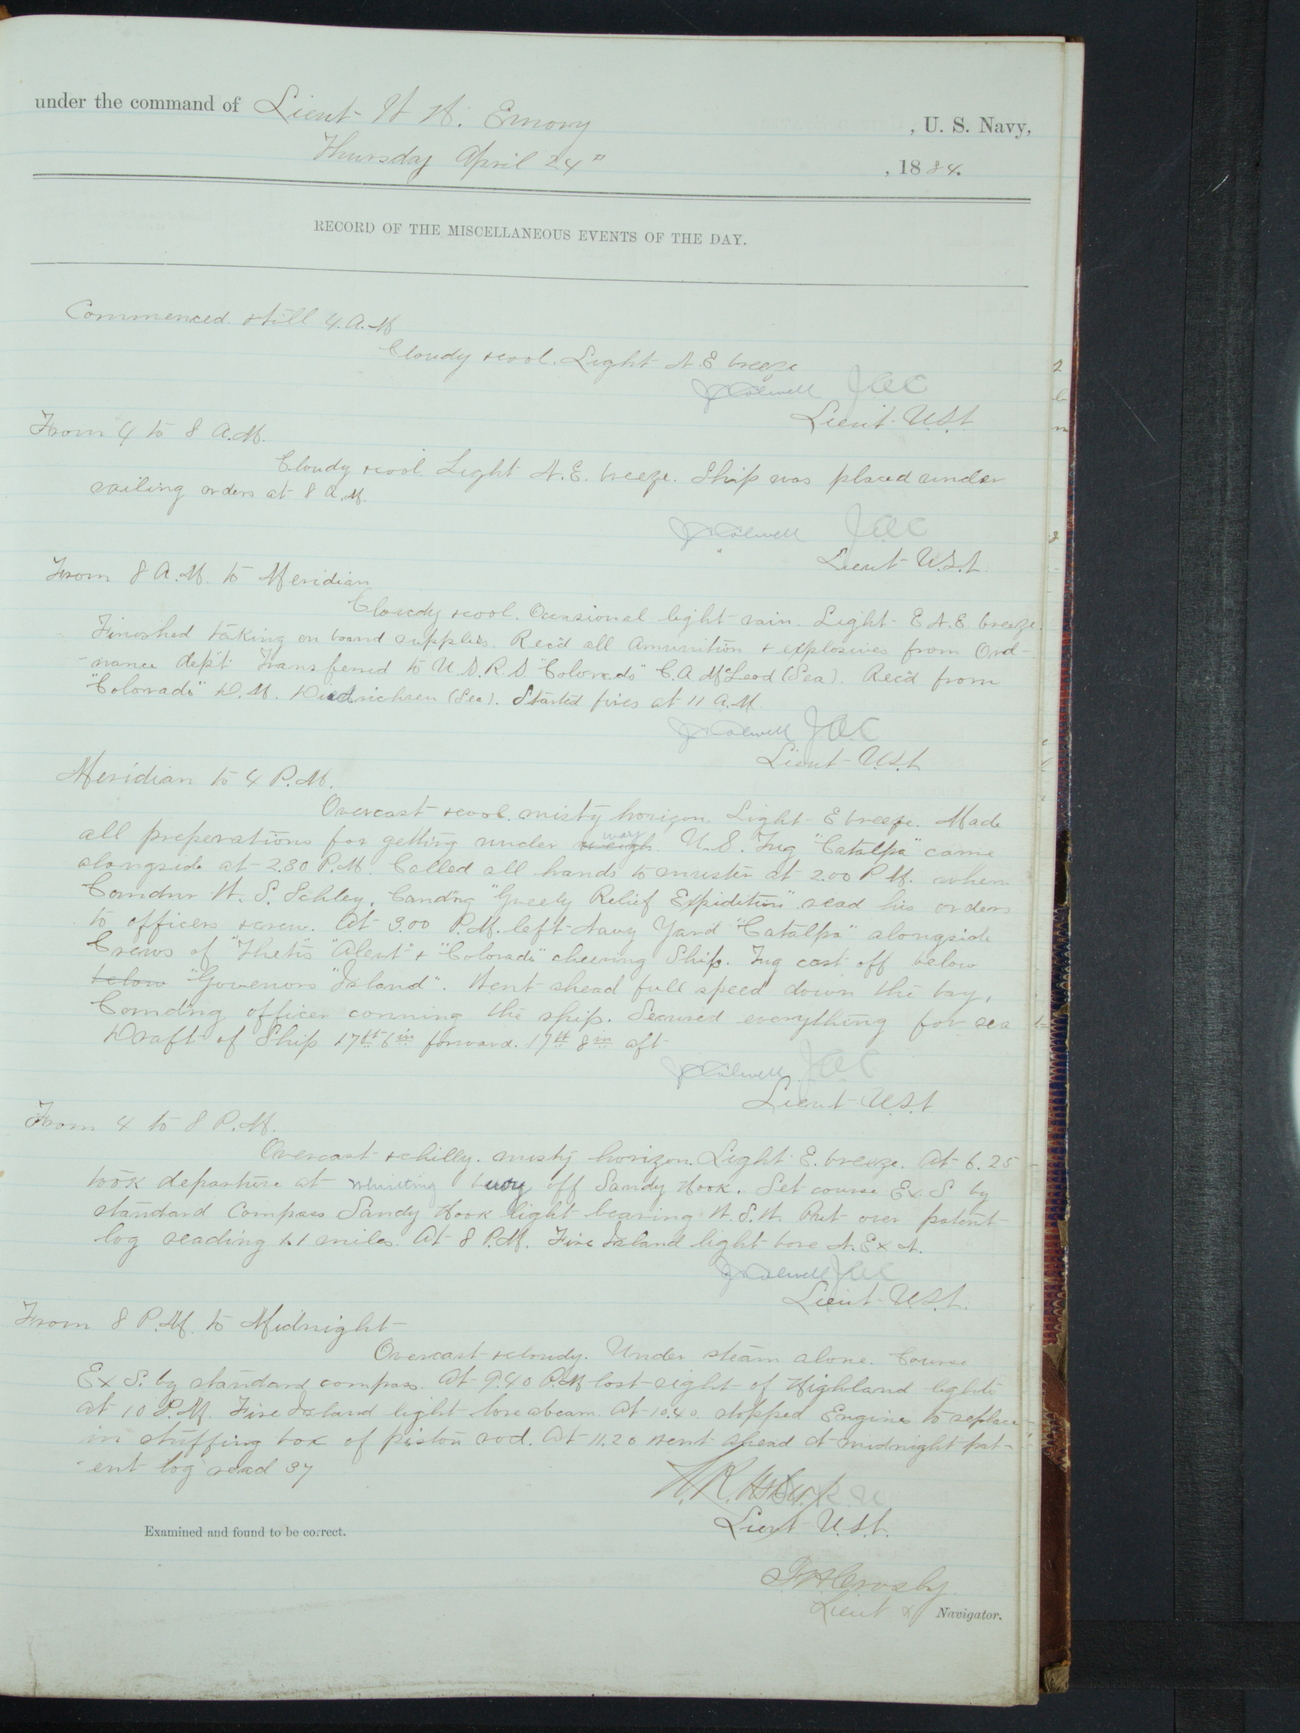 under the command of Lieut W H. Emory , U. S. Navy,
Thursday April 24" , 1884.
RECORD OF THE MISCELLANEOUS EVENTS OF THE DAY.
Commenced & till 4. A.M
Cloudy & cool. Light N.E breeze
JCColwell JCC
Lieut U.S.N
From 4 to 8 A.M.
Cloudy & cool. Light N.E. breeze. Ship was placed under
sailing orders at 8 A.M.
JCColwell JCC
Lieut U.S.N.
From 8 A.M. to Meridian
Cloudy & cool. Occasional light rain. Light E.N.E breeze.
Finished taking on board supplies. Rec'd all Amunition & explosives from Ord-
-nance dep't Transferred to U.S.R.S. "Colorado" C.A. McLeod (Sea). Rec'd from
"Colorado" Started fires at 11 A.M.
JCColwell JCC
Lieut U.S.N
Meridian to 4 P.M.
Overcast & cool. misty horizon. Light E breeze. Made
all preperations for getting under weigh way. U.S. Tug "Catalpa" came
alongside at 2.30 P.M. Called all hands to muster at 2.00 P.M. when
Comdr W. S. Schley, Comd'ng "Greely Relief Expidition" read his orders
to officers & crew. At 3.00 P.M. left Navy Yard "Catalpa" alongside
Crews of "Thetis" "Alert" & "Colorado" cheering Ship. Tug cast off below
below "Govenors Island". Went ahead full speed down the bay,
Comdng officer conning the ship. Secured everything for sea
Draft of Ship 17ft 6in forward. 17ft 8in aft
JCColwell JCC
Lieut U.S.N
From 4 to 8 P.M.
Overcast & chilly. misty horizon. Light E. breeze. At 6.25
took departure at whistling buoy off Sandy Hook. Set course E x S by
standard Compass Sandy Hook light bearing W.S.W. Put over patent
log reading 1.1 miles. At 8 P.M. Fire Island light bore N.E x N.
JCColwell JCC
Lieut U.S.N.
From 8 P.M. to Midnight
Overcast & cloudy. Under steam alone. Course
E x S. by standard compass. At 9.40 P.M lost sight of Highland lights
at 10 P.M. Fire Island light bore abeam. At 10.40. stopped Engine to replace
in stuffing box of piston rod. At 11.20 went ahead at midnight pat-
-ent log read 37
Lieut U.S.N.
Examined and found to be correct.
Crosby
Lieut & Navigator.